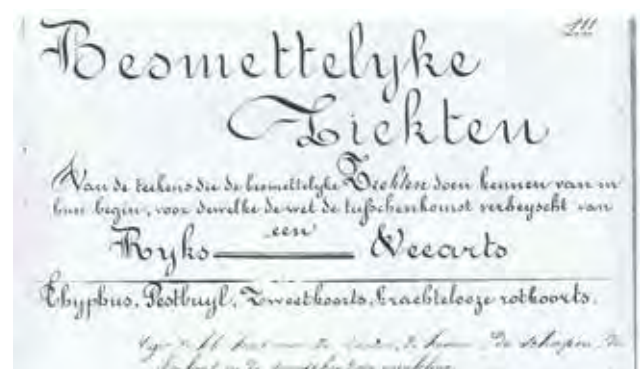 111
Besmettelyke
Ziekten
Van de teekens die de besmettelyke Ziekten doen kennen van in
hun begin, voor dewelke de wet de tusschenkomst verbeyscht van
een
Ryks Veearts
Thyphus, Pestbuyl, Zweetkoorts, krachtelooze rotkoorts.
de schapen, de